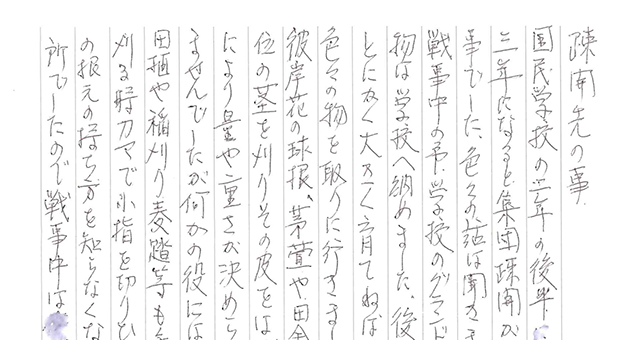 疎開先の事
国民学校の三年の後半
三年になると集団疎開が
事でした、色々の話は聞き
戦事中の予、学校のグランド
物は学校へ納めました、後
とにかく大きく育てねば
色々の物を取りに行きまし
彼岸花の球根、茅萱や田舎
位の茎を刈りその皮をは
により量や重さが決めら
ませんでしたが何かの役には
田植や稲刈り麦踏等も
刈る時カマで小指を切りひ
の根元の持ち方を知らなくな
所でしたので戦事中は